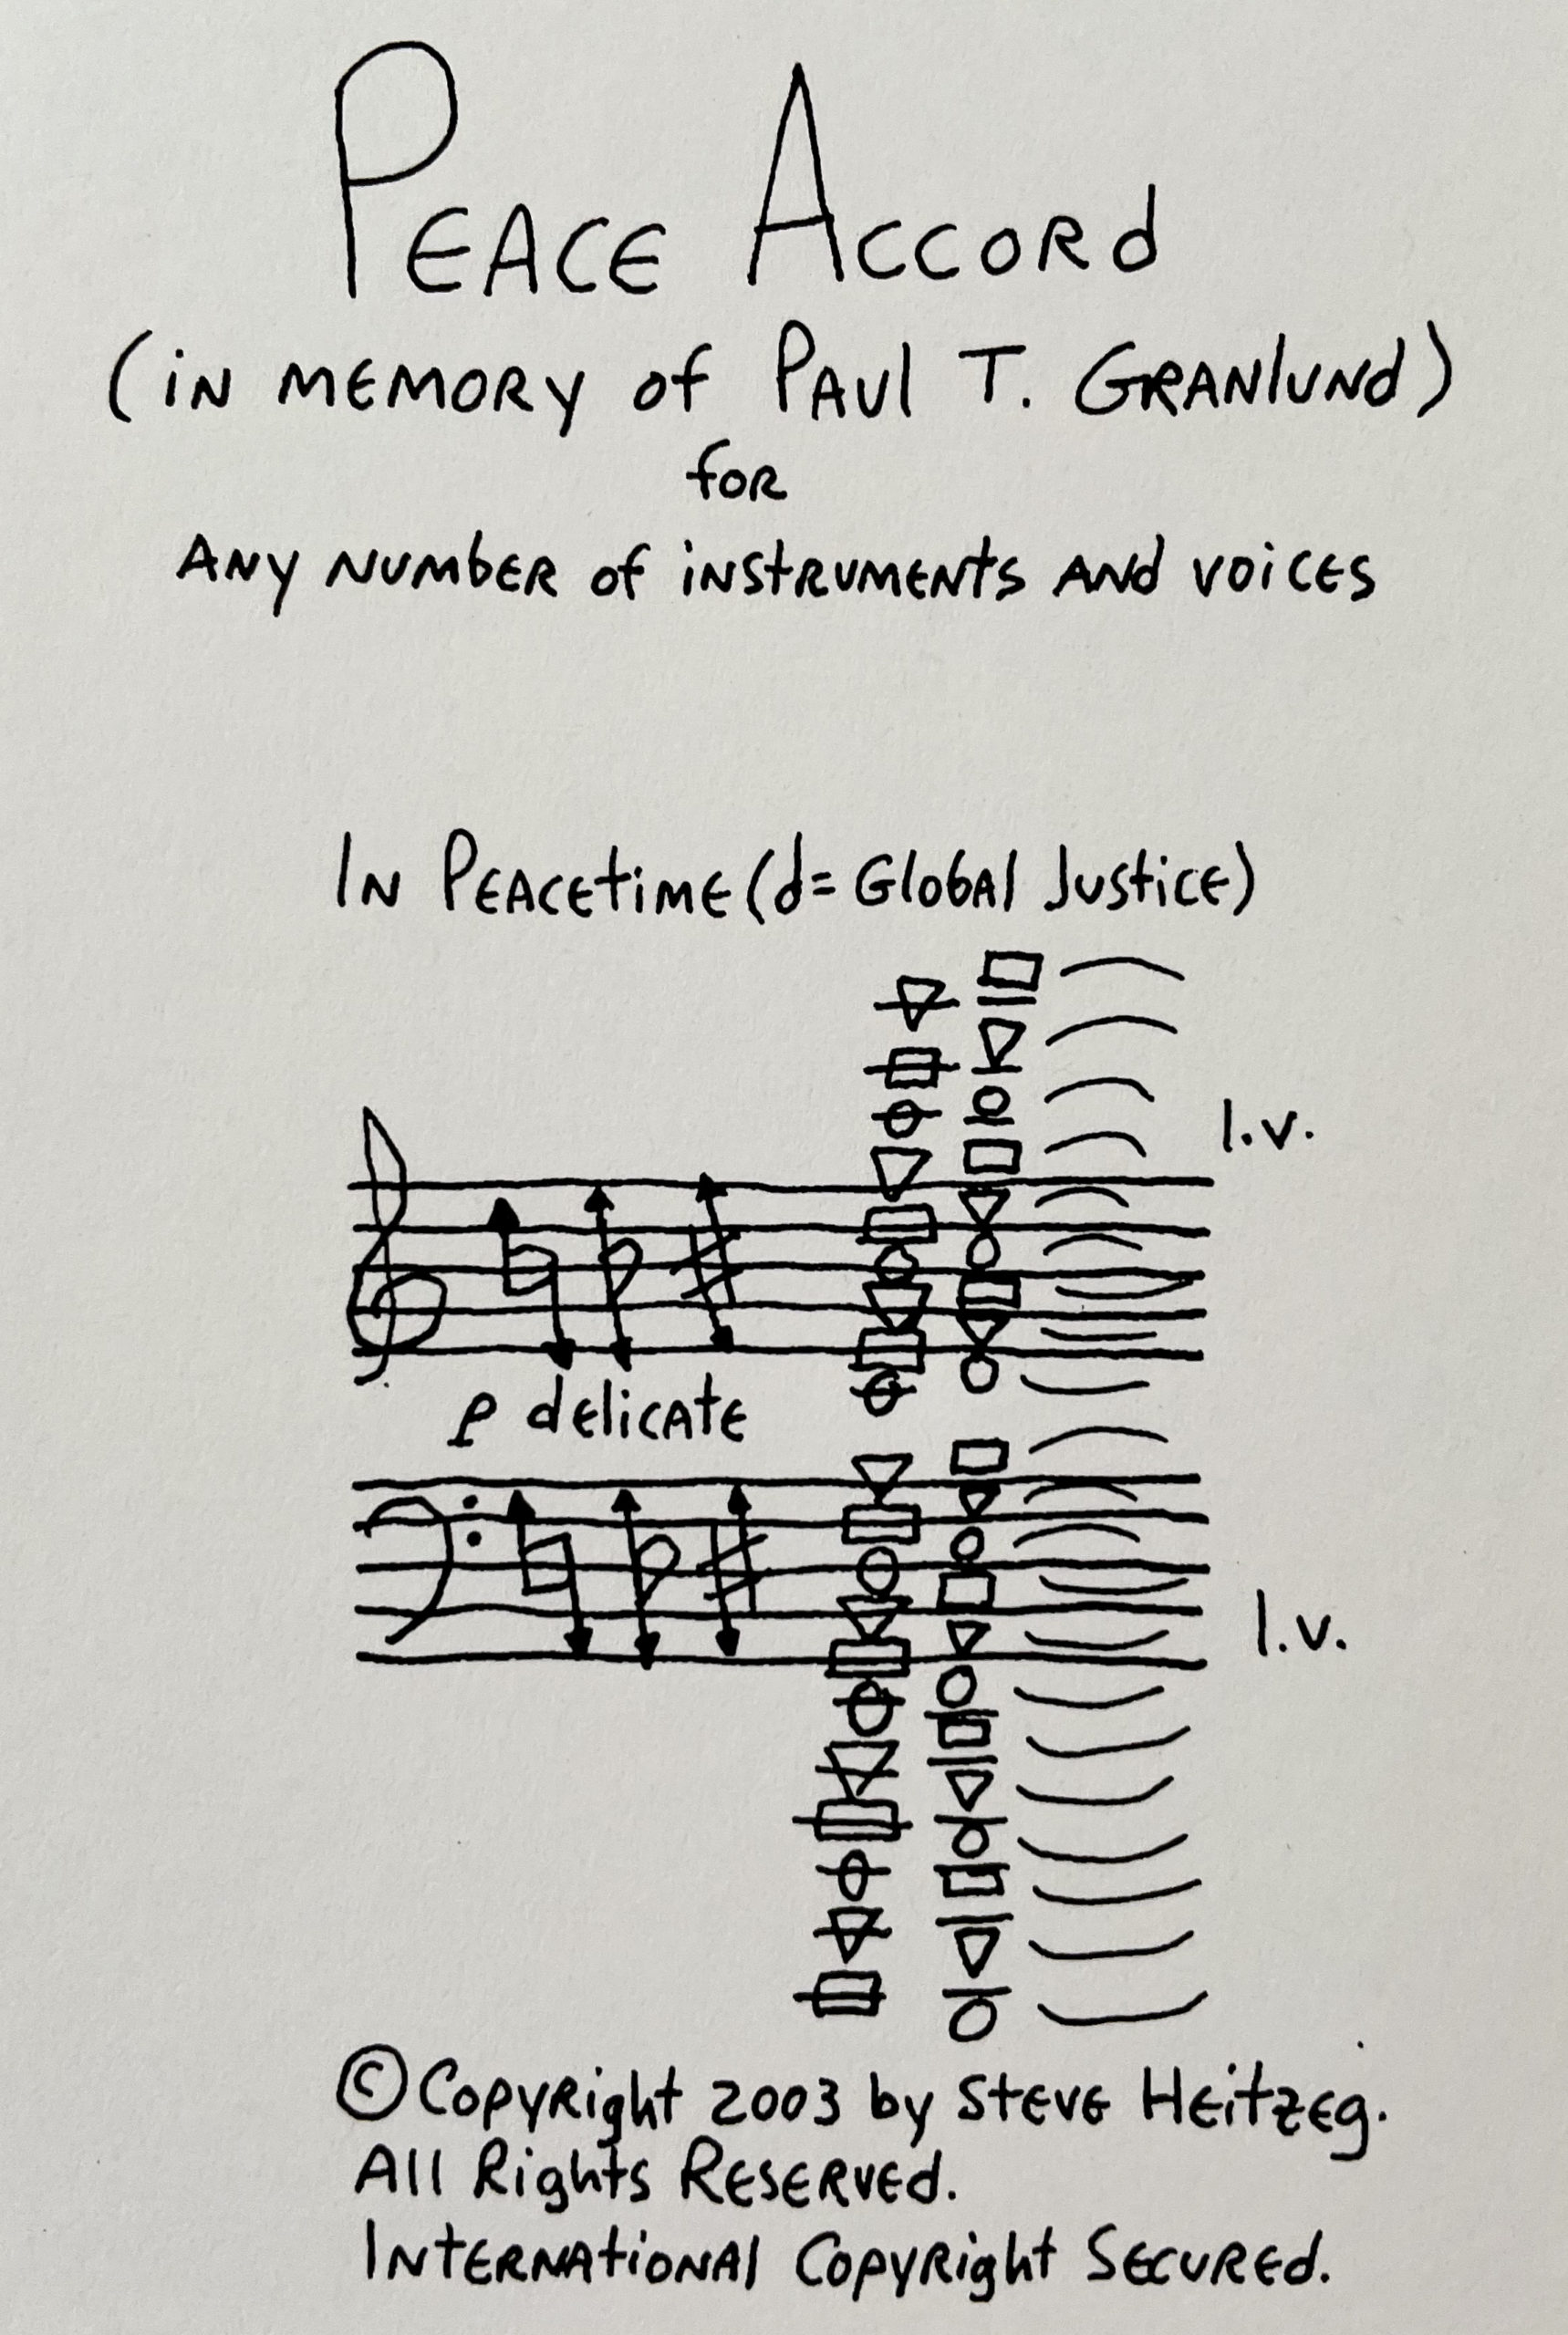 Peace Accord
(in memory of Paul T. Granlund)
for
Any number of instruments and voices
In Peacetime (d= Global Justice)
l.v.
p delicate
l.v.
© Copyright 2003 by Steve Heitzeg.
All Rights Reserved.
International Copyright Secured.